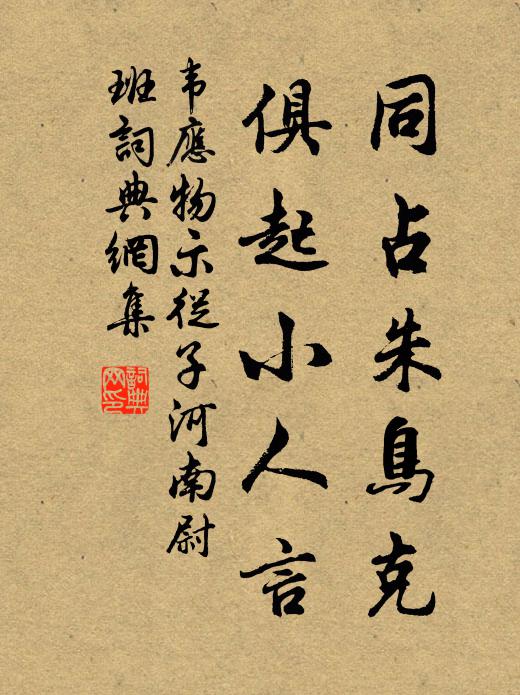 同占朱鳥克
俱起小人言
韦應物示從子河南尉
班詞典網集
詞典
网印